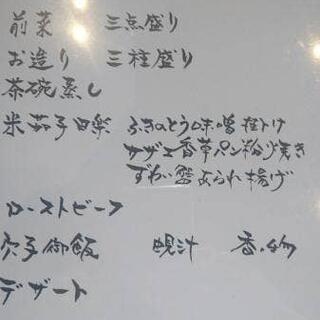 前菜 三点盛り
お造り 三種盛り
茶碗蒸し
米茄子田楽 ふきのとう味噌掛け
サザエ香草パン粉焼き
ずわい蟹あられ揚げ
ローストビーフ
穴子御飯 蜆汁 香の物
デザート